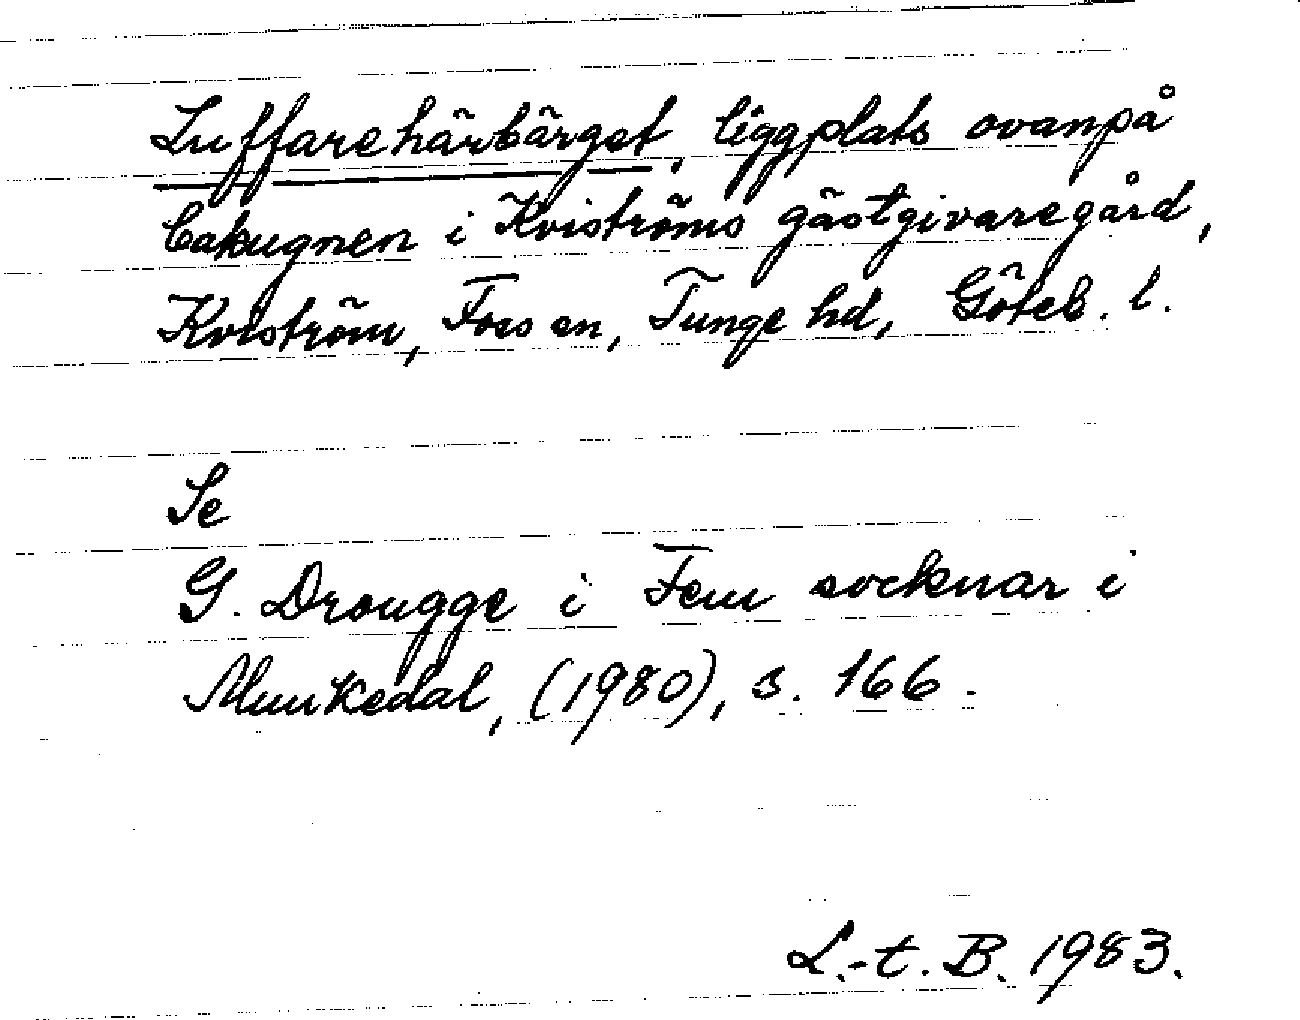 Luffarehärbärget, liggplats ovanpå
bakugnen i Kviströms gästgivaregård,
Kviström, Foss sn, Tunge hd, Göteb. l.
Se
G. Drougge i Fem socknar i
Munkedal, (1980), s. 166.
L.-t. B. 1983.